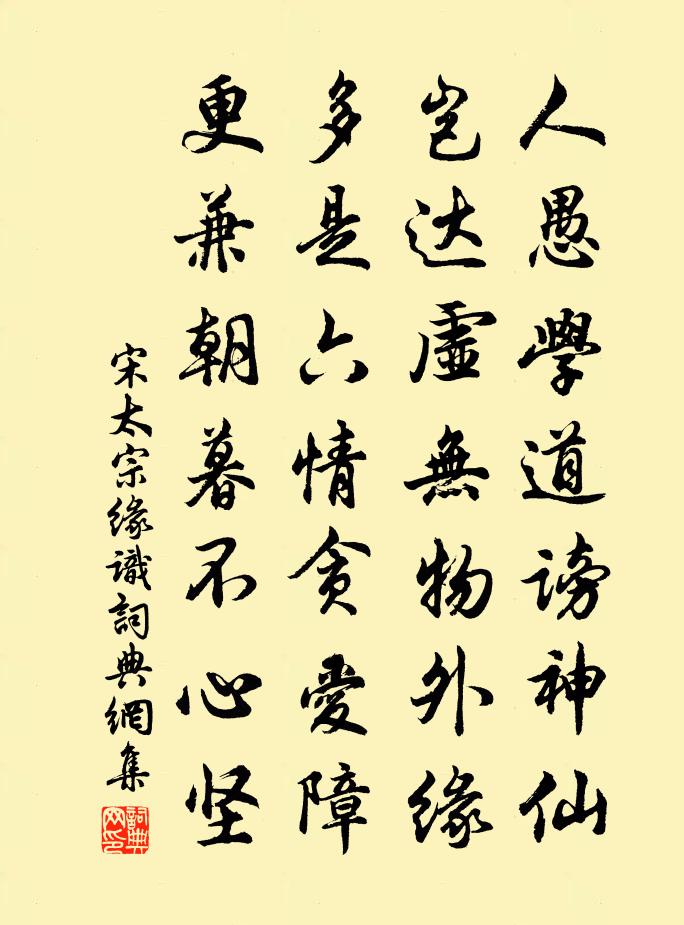 人愚學道謗神仙
岂达虛無物外缘
多是六情贪愛障
更兼朝暮不心坚
宋太宗缘識詞典網集
詞典网印